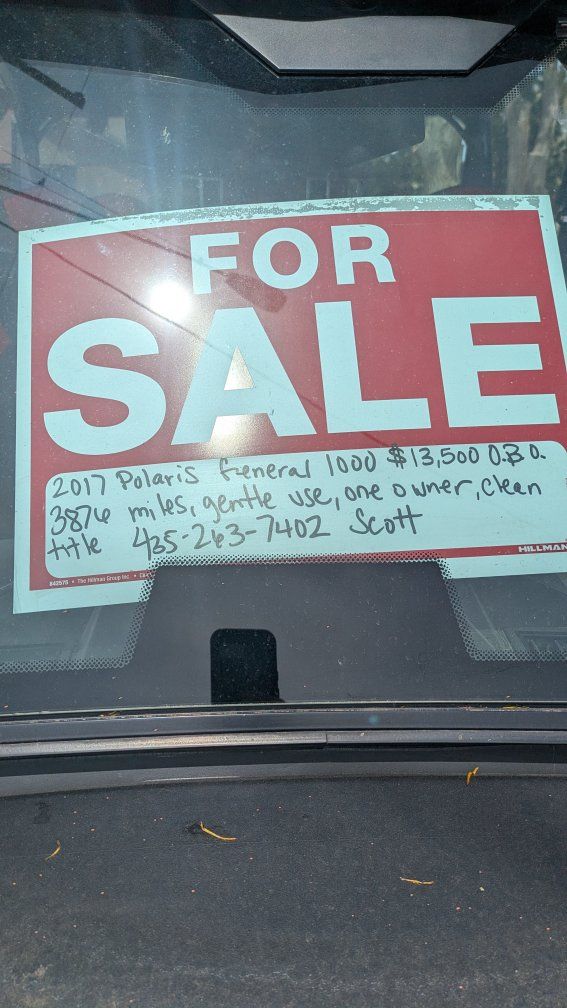 FOR
SALE
2017 Polaris General 1000 $13,500 O.B.O.
3876 miles, gentle use, one owner, clean
title 435-263-7402 Scott
HILLMAN
842576 • The Hillman Group Inc •